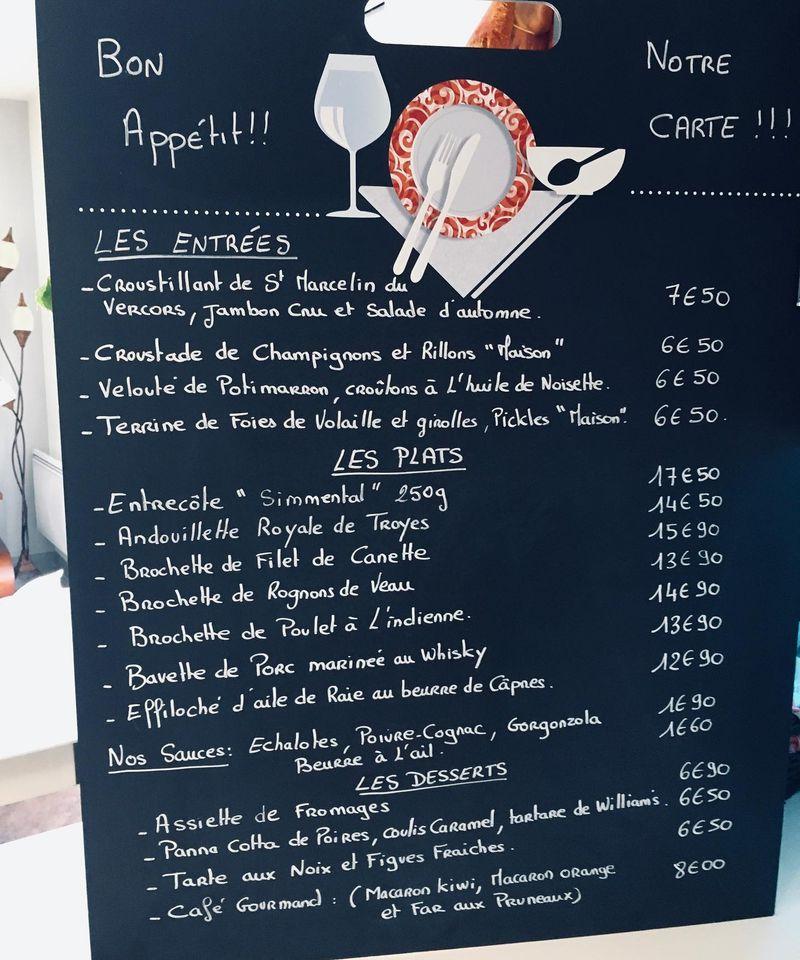 BON
NOTRE
Appétit!!
CARTE !!!
LES ENTRÉES
- Croustillant de St Marcelin du
Vercors, Jambon Cru et Salade d'automne. 7€50
- Croustade de Champignons et Rillons "Maison" 6€50
- Velouté de Potimarron, croûtons à L'huile de Noisette. 6€50
- Terrine de Foies de Volaille et girolles, Pickles "Maison". 6€50.
LES PLATS
- Entrecôte "Simmental" 250g 17€50
- Andouillette Royale de Troyes 14€50
- Brochette de Filet de Canette 15€90
- Brochette de Rognons de Veau 13€90
- Brochette de Poulet à L'indienne. 14€90
- Bavette de Porc marineé au Whisky 13€90
- Effiloché d'aile de Raie au beurre de Câpres. 12€90
Nos Sauces: Echalotes, Poivre-Cognac, Gorgonzola 1€90
Beurre à L'ail. 1€60
LES DESSERTS
- Assiette de Fromages 6€90
- Panna Cotta de Poires, coulis Caramel, tartare de William's. 6€50
- Tarte aux Noix et Figues Fraiches. 6€50
- Café Gourmand : (Macaron kiwi, Macaron orange 8€00
et Far aux Pruneaux)